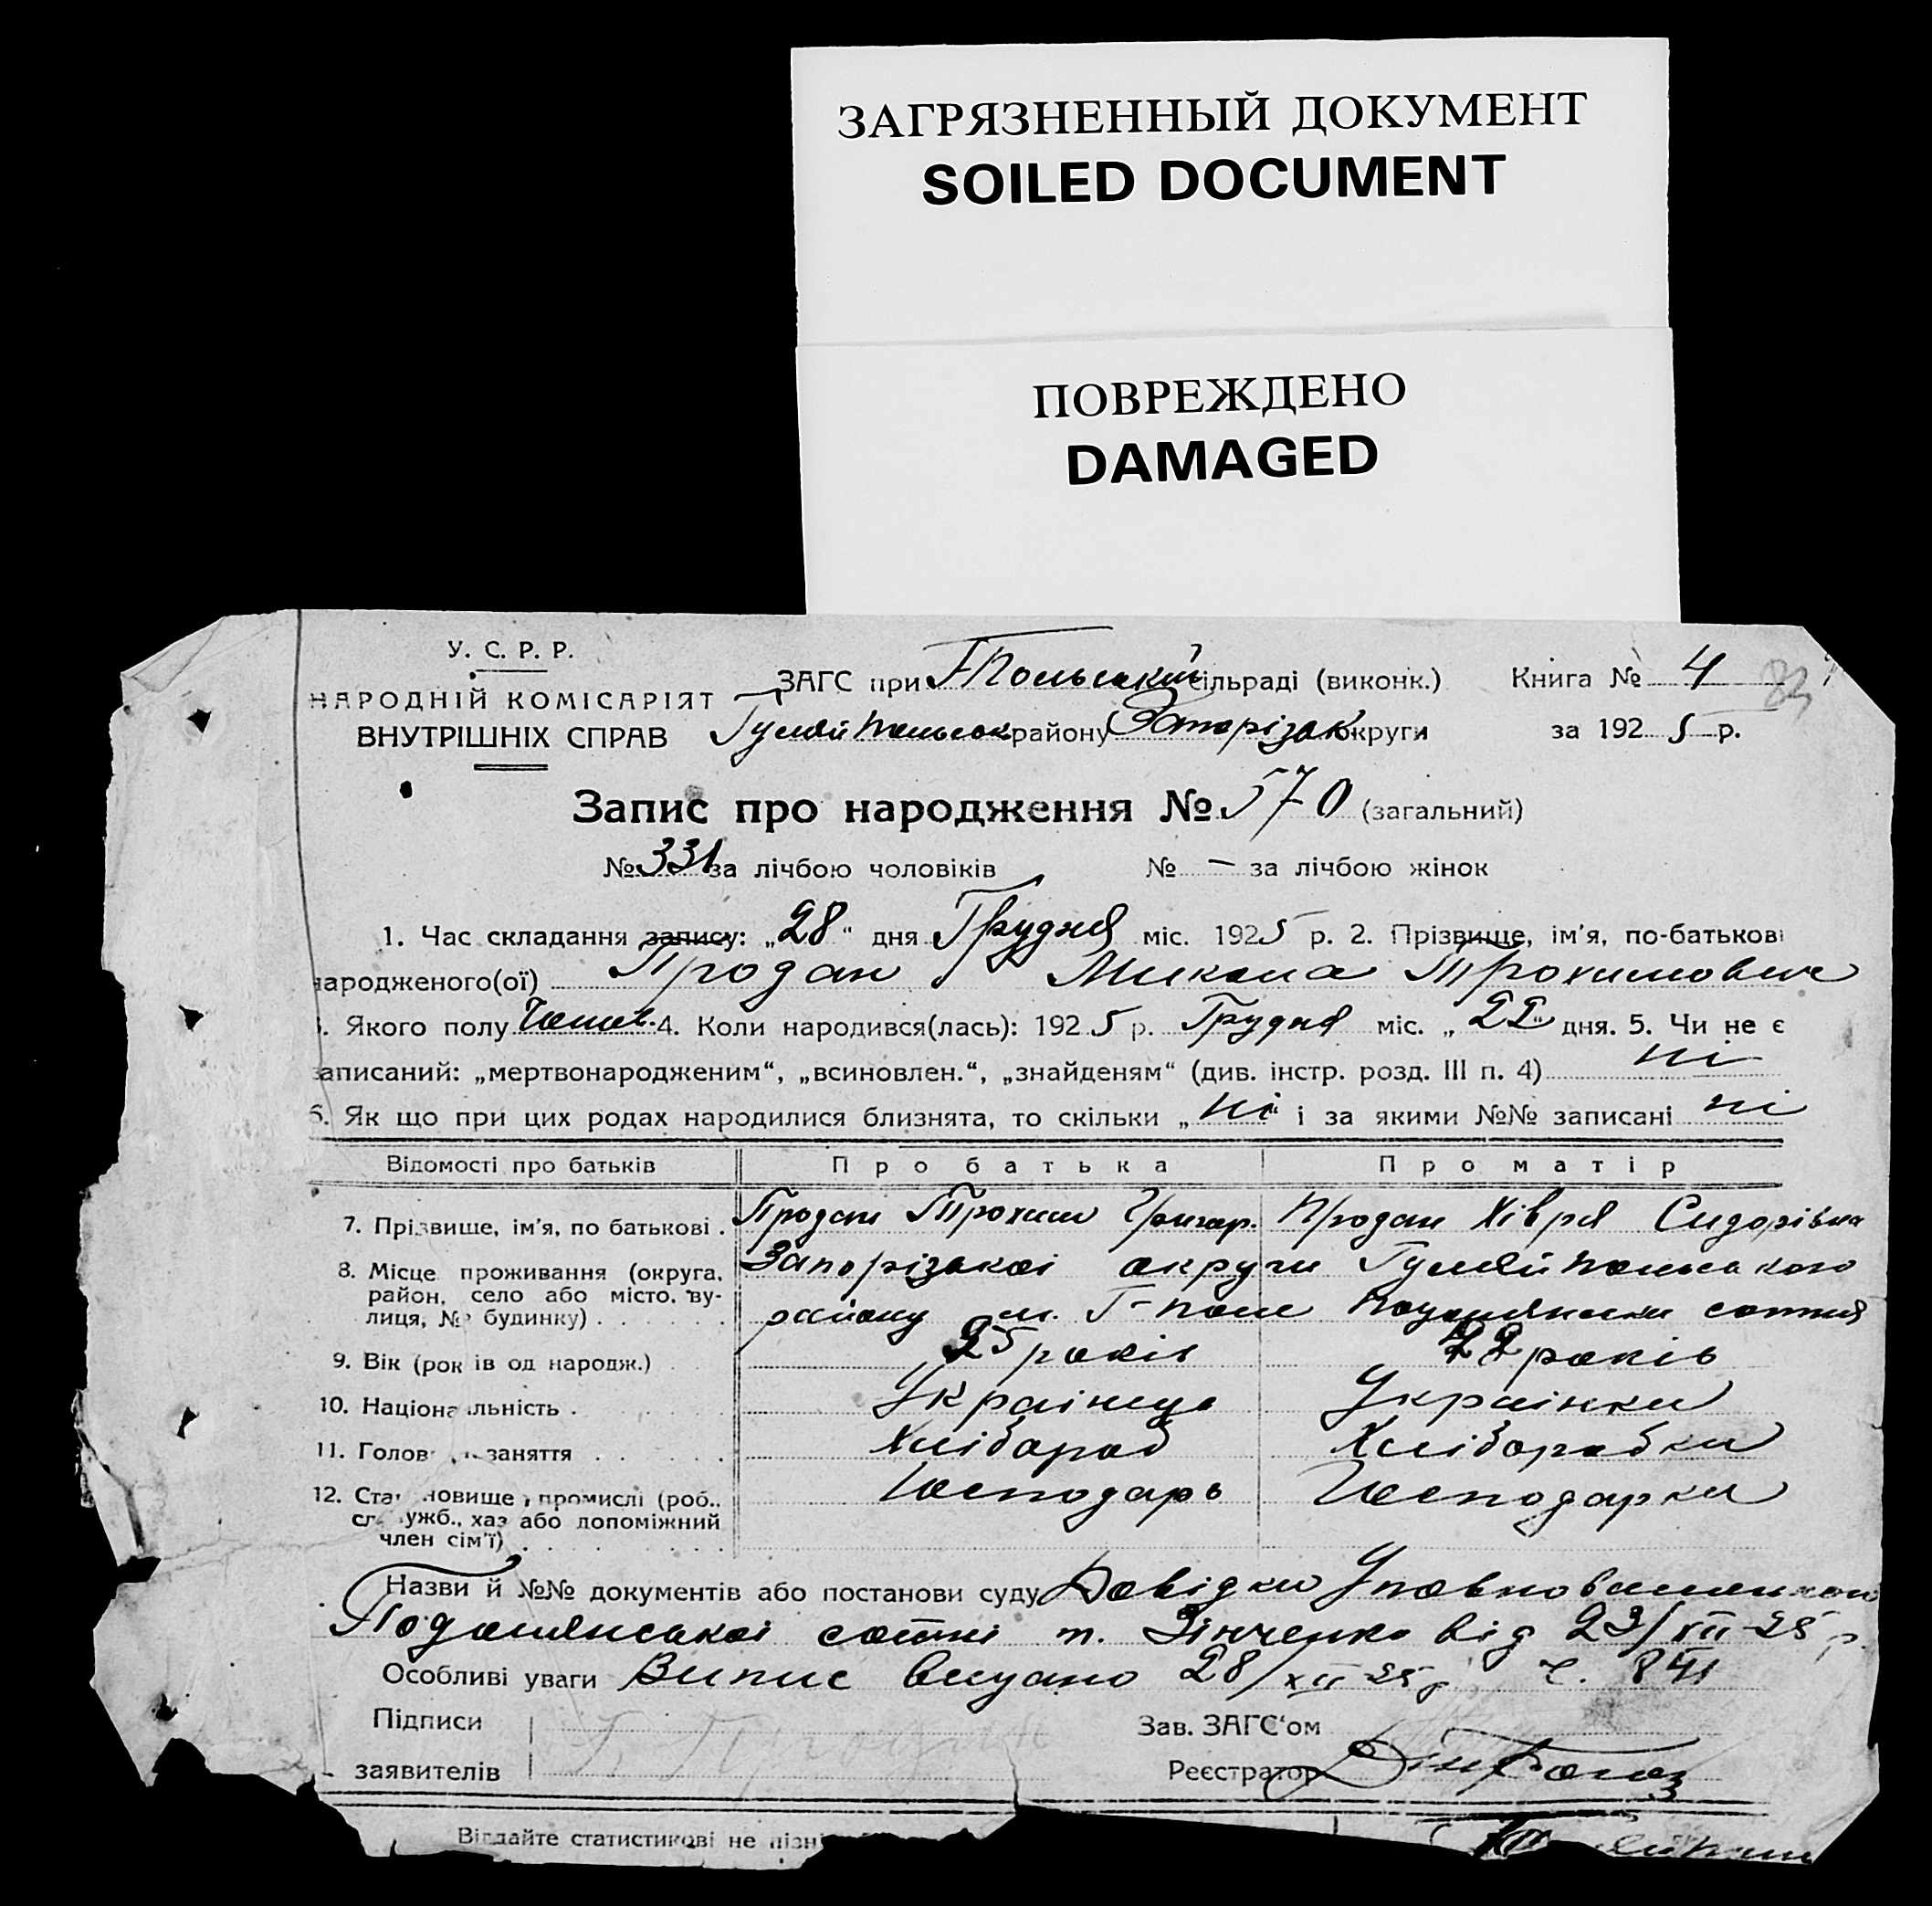 ЗАГРЯЗНЕННЫЙ ДОКУМЕНТ
SOILED DOCUMENT
ПОВРЕЖДЕНО
DAMAGED
У. С. Р. Р.
НАРОДНІЙ КОМІСАРІЯТ
ВНУТРІШНІХ СПРАВ
ЗАГС при Г-Польській сільраді (виконк.)
Гуляй Польськ району Запорізьк округи
Книга № 4
за 1925 р.
Запис про народження № 570 (загальний)
№ 331 за лічбою чоловіків № — за лічбою жінок
1. Час складання запису: „28“ дня Грудня міс. 1925 р. 2. Прізвище, ім'я, по-батькові
народженого(ої) Продан Микола Трохимович
3. Якого полу Чолов. 4. Коли народився(лась): 1925 р. Грудня міс. „22“ дня. 5. Чи не є
записаний: „мертвонародженим“, „всиновлен.“, „знайденям“ (див. інстр. розд. III п. 4) ні
6. Як що при цих родах народилися близнята, то скільки „ні“ і за якими №№ записані ні
Відомості про батьків Про батька Про матір
7. Прізвище, ім'я, по батькові . Продан Трохим Григор. Продан Хівря Сидорівна
8. Місце проживання (округа, район, село або місто, вулиця, № будинку) Запорізькоі округи Гуляйпольського
району м. Г-поле Подолянськи сотня
9. Вік (років од народж.) 25 років 22 років
10. Національність . Українець Українка
11. Головн заняття Хлібороб Хліборобка
12. Становище в промислі (роб., служб., хаз або допоміжний член сім'ї) Господарь Господарка
Назви й №№ документів або постанови суду Довідки Уповноваженого
Подолянськоі сотні т. Зінченко від 23/XII-25 р.
Особливі уваги Випис видано 28/XII 25 р. ч. 841
Підписи
заявителів
Зав. ЗАГС‘ом
Реєстратор
Віддайте статистикові не пізні